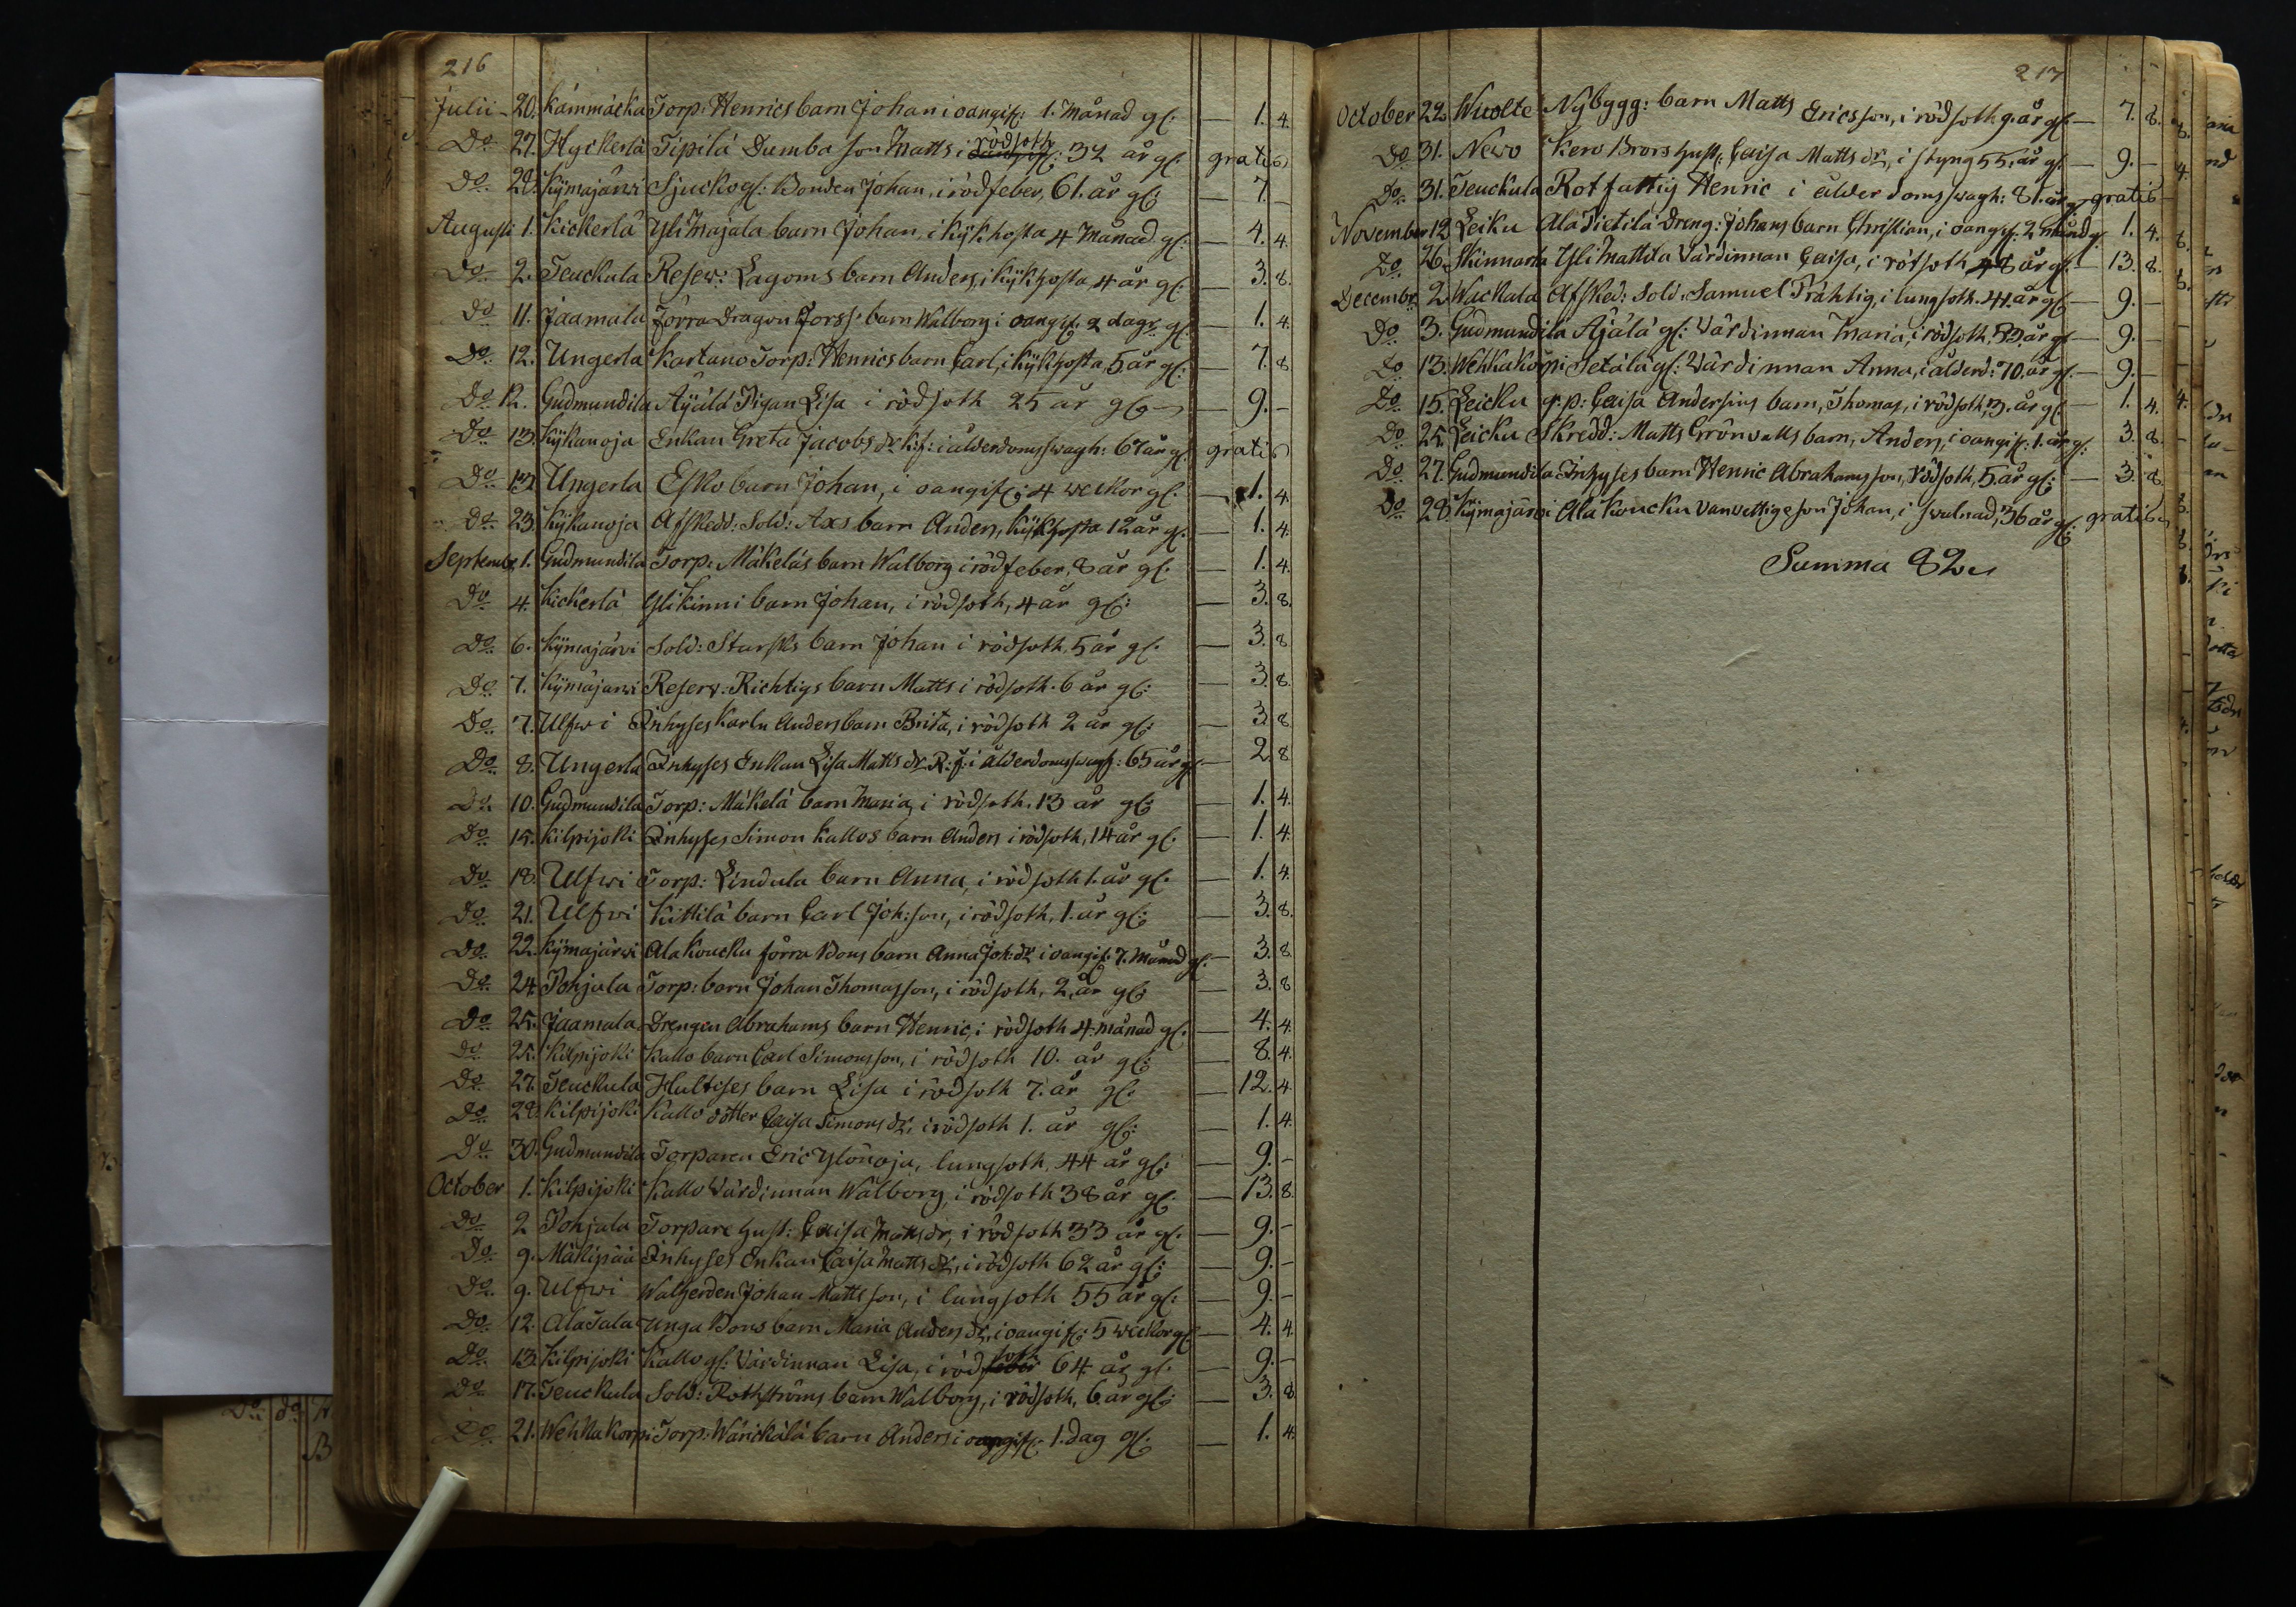 216
Julii - 20. Kämmäckä Torp: Henrics barn Johan i oangif: 1. Månad gl: — 1. 4.
Do 27. Hyckerlä Tipilä Dumba son Matts i rödsoth 32 år gl: gratis
Do 28. Kÿmajärwi Sjuckogl: Bonden Johan, i rödfeber, 61. år gl: — 7. -
Augusti 1. Kickerlä Yli Majala barn Johan, i kÿkhosta 4 Månad gl: — 4. 4.
Do 2. Teuckula Resew: Lagoms barn Anders, i kÿkhosta, 4 år gl: — 3. 8.
Do 11. Jaamala förra Dragon Forss barn Walborg i oangif. 2 dagr gl: — 1. 4.
Do 12. Ungerla Kartano Torp: Henrics barn Carl, i kÿkhosta, 5 år gl: — 7. 8
Do 12. Gudmundila Äÿälä Pigan Lisa i rödsoth 25 år gl: — 9. -
Do 13. Kÿkanoja Enkan Greta Jacobs dr k:f: i ålderdomsswagh: 67 år gl gratis
Do 13. Ungerla Esko barn Johan, i oangif: 4 weckor gl: — 1. 4
Do 23. Kÿkanoja Afskedd: Sold: Axs barn Anders, kÿkhosta 12 år gl. — 1. 4
Septembr. 1. Gudmundila Torp: Mäkeläs barn Walborg i rödfeber, 8 år gl. — 1. 4.
Do 4. Kickerlä Ylikinni barn Johan, i rödsoth, 4 år gl: — 3. 8.
Do 6. Kÿmajärwi Sold: Starsks barn Johan i rödsoth, 5 år gl. — 3. 8
Do 7. Kÿmäjärwi Reserv: Richtigs barn Matts i rödsoth. 6 år gl: — 3. 8.
Do 7. Ulfwi Inhyses Karln Anders barn Brita, i rödsoth 2 år gl: — 3. 8.
Do 8. Ungerla Inhyses Enkan Lisa Matts dr R: f: i ålderdomsswagh: 65 år gl — 2. 8
Do 10. Gudmundila Torp: Mäkelä barn Maria, i rödsoth. 13 år gl: — 1. 4.
Do 15. Kilpijoki Inhyses Simon Kallos barn Anders i rödsoth, 14 år gl. — 1. 4.
Do 18. Ulfwi Torp: Lindula barn Anna, i rödsoth 1. år gl. — 1. 4.
Do 21. Ulfwi Kittilä barn Carl Joh:son, i rödsoth, 1. år gl: — 3. 8.
Do 22. Kÿmajärwi Ala Koucku förra Bons barn Anna Joh: dr i oangif. 7. Månad gl. — 3. 8.
Do 24. Pohjala Torp: barn Johan Thomasson, i rödsoth, 2, år gl: — 3. 8
Do 25. Jaamala Drengen Abrahams barn Henric, i rödsoth 4 månad gl. — 4. 4.
Do 25. Kilpijoki Kallo barn Carl Simonsson, i rödsoth 10. år gl: — 8. 4.
Do 27. Teuckula Hultises barn Lisa i rödsoth 7. år gl. — 12. 4
Do 28. Kilpijoki Kallo dotter Caisa Simons dr, i rödsoth 1. år gl: — 1. 4.
Do 30. Gudmundila Torparen Eric Ylönoja, lungsoth, 44 år gl: — 9. -
October 1. Kilpijoki Kallo Värdinnan Walborg, i rödsoth 38 år gl. — 13. 8.
Do 2 Pohjala Torpare hust: Caisa Matts dr, i rödsoth 33 år gl. — 9. -
Do 9. Mäkipää Inhyses Enkan Caisa Matts dr, i rödsoth 62 år gl: — 9. -
Do 9. Ulfwi Walherden Johan Mattsson, i lungsoth 55 år gl: — 9. -
Do 12. Ala Tala Unga Bons barn Maria Anders dr, i oangif: 5 weckor gl — 4. 4.
Do 13. Kilpijoki Kallo gl: Värdinnan Lisa, i rödsoth 64 år gl. — 9. -
Do 17. Teuckula Sold: Rothströms barn Walborg, i rödsoth, 6. år gl: — 3. 8.
Do 21. Wehkakorpi Torp: Wärickälä barn Anders i oangif: 1. dag gl: — 1. 4.
217
October 22. Wuolte Nÿbygg: barn Matts Ericsson, i rödsoth 9. år gl — 7. 8.
Do 31. Newo Kero Brors hust: Caisa Matts dr, i styng 55. år gl. — 9. -
Do 31. Teuckula Rotfattig Henric i ålderdomsswagh: 81. år gl gratis
November 12 Leiku Ala Pietilä Dreng: Johans barn Christian, i oangif: 2 månd gl 1. 4.
Do 26. Skinnarla Yli Mattila Värdinnan Caisa, i rötsoth 48 år gl — 13. 8.
Decembr. 2. Wackala Afsked: Sold. Samuel Prähtig, i lungsoth. 41. år gl — 9. -
Do 3. Gudmundila Äjälä gl: Värdinnan Maria, i rödsoth, 53. år gl — 9. -
Do 13. Wehkakorpi Petälä gl: Värdinnan Anna, i ålderd: 70. år gl. — 9. -
Do 15. Leicku q. p: Caisa Andersins barn, Thomas, i rödsoth, 3. år gl. — 1. 4.
Do 25. Leicku Skredd: Matts Grönwalls barn, Anders, i oangif: 1. år gl: 3. 8.
Do 27. Gudmundila Inhyses barn Henric Abrahamsson, rödsoth, 5. år gl: — 3. 8.
Do 28. Kÿmajärwi Ala Koucku vanwettige son Johan, i swulnad, 36 år gl: gratis
Summa 82